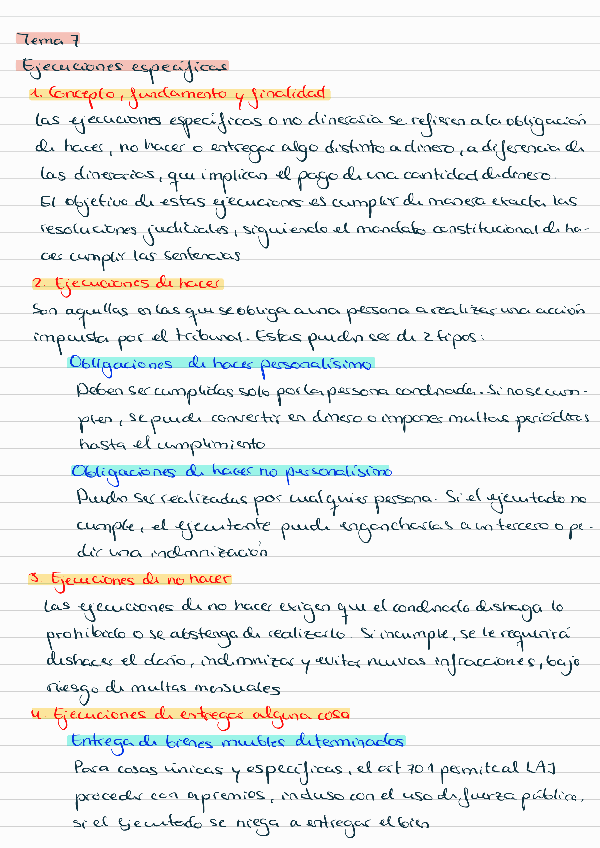 Tema 7
Ejecuciones específicas
1. Concepto, fundamento y finalidad
Las ejecuciones específicas o no dineraria se refieren a la obligación
de hacer, no hacer o entregar algo distinto a dinero, a diferencia de
las dinerarias, que implican el pago de una cantidad de dinero.
El objetivo de estas ejecuciones es cumplir de manera exacta las
resoluciones judiciales, siguiendo el mandato constitucional de ha-
cer cumplir las sentencias
2. Ejecuciones de hacer
Son aquellas en las que se obliga a una persona a realizar una acción
impuesta por el tribunal. Estas pueden ser de 2 tipos:
Obligaciones de hacer personalísimo
Deben ser cumplidas solo por la persona condenada. Si no se cum-
plen, se puede convertir en dinero o imponer multas periódicas
hasta el cumplimiento
Obligaciones de hacer no personalísimo
Pueden ser realizadas por cualquier persona. Si el ejecutado no
cumple, el ejecutante puede engancharlas a un tercero o pe-
dir una indemnización
3. Ejecuciones de no hacer
Las ejecuciones de no hacer exigen que el condenado deshaga lo
prohibido o se abstenga de realizarlo. Si incumple, se le requerirá
deshacer el daño, indemnizar y evitar nuevas infracciones, bajo
riesgo de multas mensuales
4. Ejecuciones de entregar alguna cosa
Entrega de bienes muebles determinados
Para cosas únicas y específicas, el art 701 permite al LAJ
proceder con apremios, incluso con el uso de fuerza pública,
si el ejecutado se niega a entregar el bien